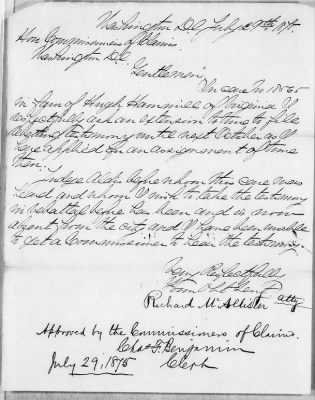 Washington D.C. July 29th 1875.
Hon Commissioners of Claims.
Washington D.C.
Gentlemen
In case No 18565
in favor of Hugh Hammill of Virginia I
respectfully ask an extension of time to file
rebutting testimony until next October as I
have applied for an assignment of time
then.
Judge Aldis before whom this case was
heard and whom I wish to take the testimony
in rebuttal before has been and is now
absent from the city and I have been unable
to get a Commissioner to hear the testimony.
Very Respectfully
Your Obt Servt
Richard McAllister atty
Approved by the Commissioners of Claims.
Chas F. Benjamin
July 29, 1875 Clerk